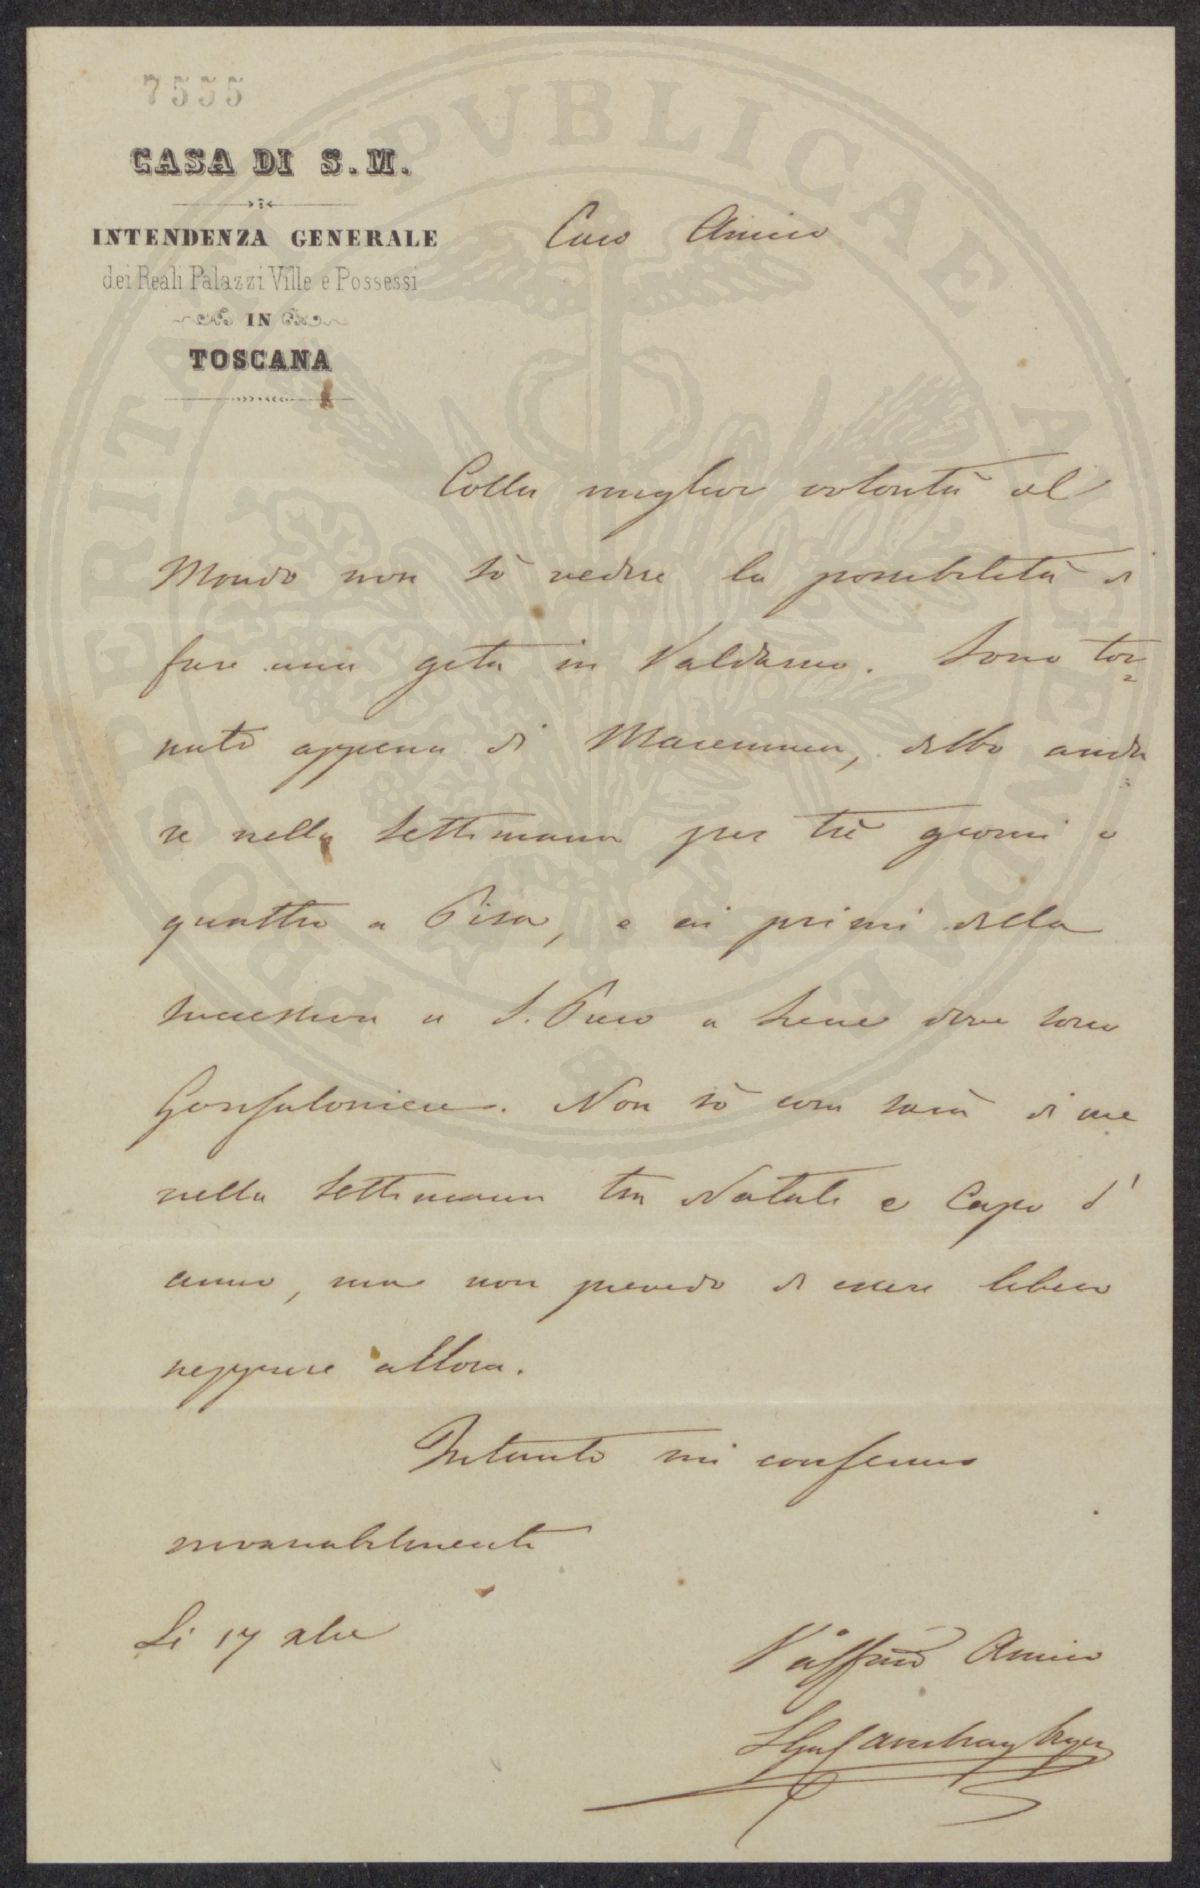 7555
CASA DI S. M.
INTENDENZA GENERALE
dei Reali Palazzi Ville e Possessi
IN
TOSCANA
PROSPERITATI PVBLICAE AVGENDAE
Caro Amico
Colla miglior volontà al
Mondo non sò vedere la possibilità di
fare una gita in Valdarno. Sono tor=
nato appena di Maremma, debbo anda=
re nella settimana per tre giorni o
quattro a Pisa, e ai primi della
successiva a S. Piero a Sieve dove sono
Gonfaloniere. Non sò cosa sarà di me
nella settimana tra Natale e Capo d'
anno, ma non prevedo di essere libero
neppure allora.
Intanto mi confermo
invariabilmente
Li 17 Xbre
V'affmo Amico